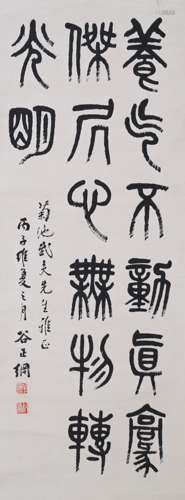 養气不動真豪
傑居心無物轉
光明
菊池武夫先生雅正
丙子維夏之月 谷正綱